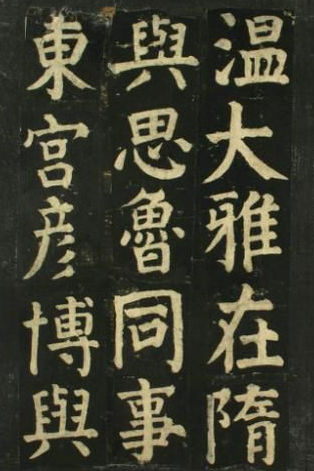 温大雅在隋
與思魯同事
東宮彦博與